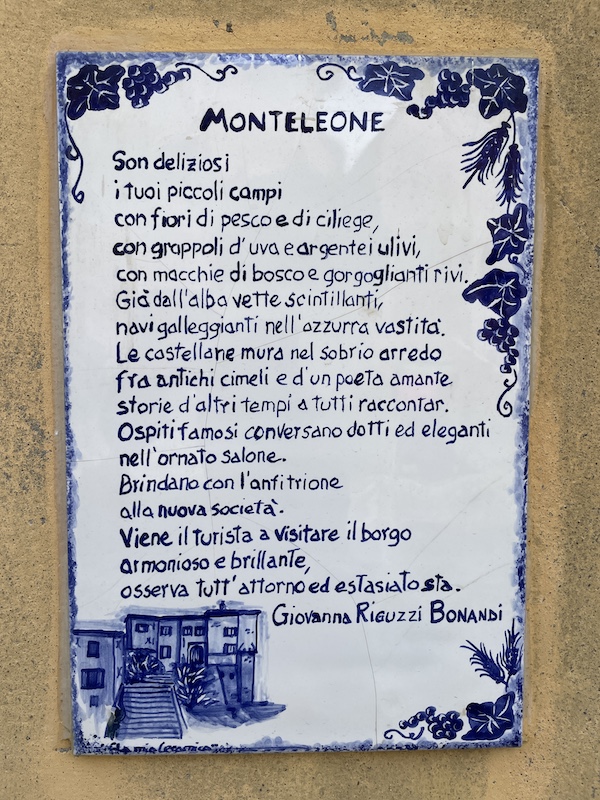 MONTELEONE
Son deliziosi
i tuoi piccoli campi
con fiori di pesco e di ciliege,
con grappoli d'uva e argentei ulivi,
con macchie di bosco e gorgoglianti rivi.
Già dall'alba vette scintillanti,
navi galleggianti nell'azzurra vastità.
Le castellane mura nel sobrio arredo
fra antichi cimeli e d'un poeta amante
storie d'altri tempi a tutti raccontar.
Ospiti famosi conversano dotti ed eleganti
nell'ornato salone.
Brindano con l'anfitrione
alla nuova società.
Viene il turista a visitare il borgo
armonioso e brillante,
osserva tutt'attorno ed estasiato sta.
GIOVANNA RIGUZZI BONANDI
"La mia Ceramica"